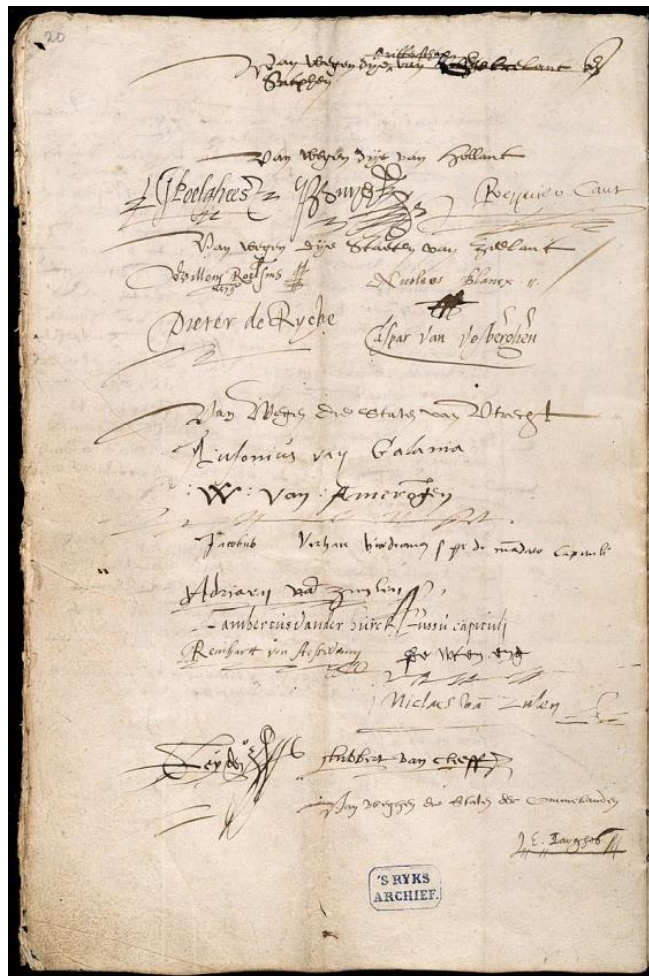 20
Van wegen dye van
Zutphen
Van wegen dye van Hollant
GPoelghees Reynier Cant
Van wegen dye Staeten van Zeelant
Willem Roelsius Nicolaes Blancx
Pieter de Rycke Caspar van Vosberghen
Van Wegen die Staten van Utrecht
Antonius van Galama
W: van Amerongen
Jacobus Verhaer de mandato Capituli
Adriaen van Zuylen
Lambertus vander burch Jussu capituli
Reinhart von
Niclaes van Zulen
Lubbert van Cleeff
Van wegen die Staten der Ommelanden
E. Jarghes
'S RYKS
ARCHIEF.